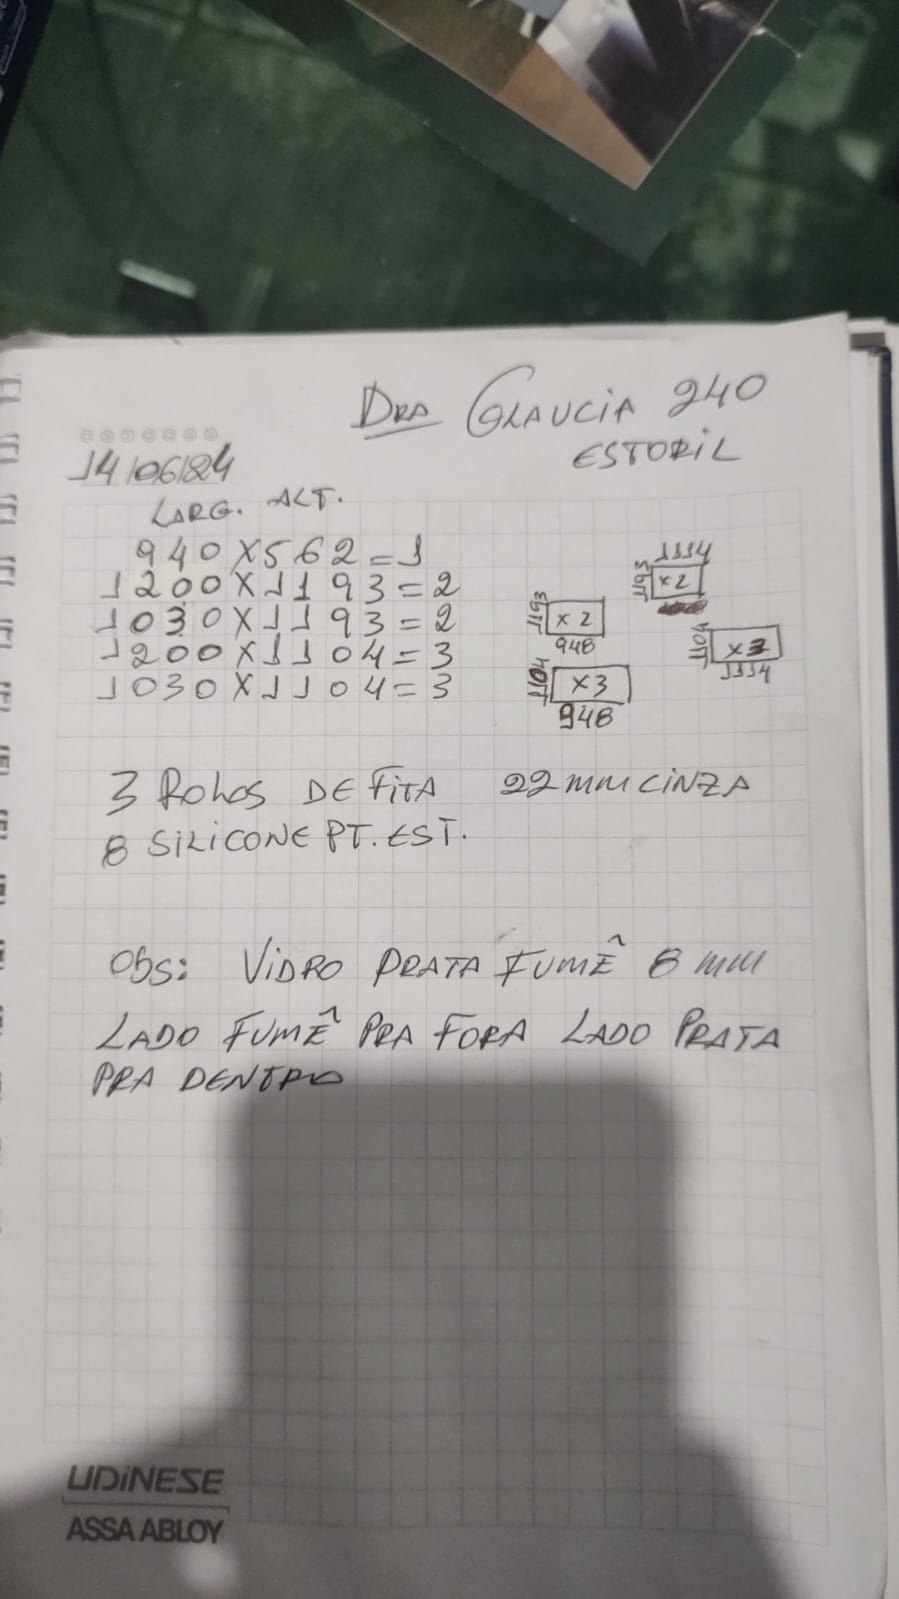 DRA GLAUCIA 240
ESTORIL
14/06/24
LARG. ALT.
940 X 562 = 1
1200 X 1193 = 2
1030 X 1193 = 2
1200 X 1104 = 3
1030 X 1104 = 3
1114
1193
x 2
1193
x 2
948
1104
x 3
1114
1104
x 3
948
3 Rolos DE FITA 22 mm CINZA
8 SILICONE PT. EST.
Obs: VIDRO PRATA FUMÊ 8 mm
LADO FUMÊ PRA FORA LADO PRATA
PRA DENTRO
UDiNESE
ASSA ABLOY